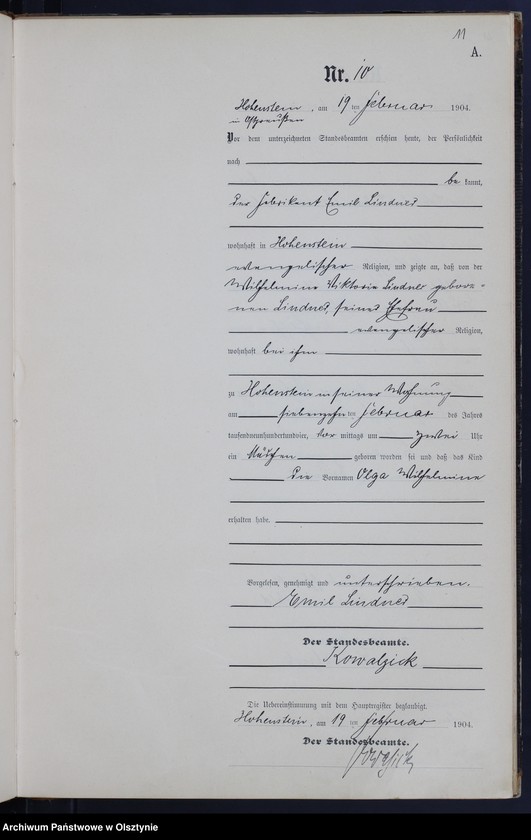 11
A.
Nr. 10
Hohenstein, am 19 ten Februar 1904.
in O/Preußen
Vor dem unterzeichneten Standesbeamten erschien heute, der Persönlichkeit
nach
be kannt,
der Fabrikant Emil Lindner
wohnhaft in Hohenstein
evangelischer Religion, und zeigte an, daß von der
Wilhelmine Viktoria Lindner gebore-
nen Lindner, seiner Ehefrau
evangelischer Religion,
wohnhaft bei ihm
zu Hohenstein in seiner Wohnung
am siebenzehn ten Februar des Jahres
tausendneunhundertundvier, vor mittags um zwei Uhr
ein Mädchen geboren worden sei und daß das Kind
die Vornamen Olga Wilhelmine
erhalten habe.
Vorgelesen, genehmigt und unterschrieben.
Emil Lindner
Der Standesbeamte.
Kowalzick
Die Uebereinstimmung mit dem Hauptregister beglaubigt.
Hohenstein, am 19 ten Februar 1904.
Der Standesbeamte.
Kowalzick
Archiwum Państwowe w Olsztynie